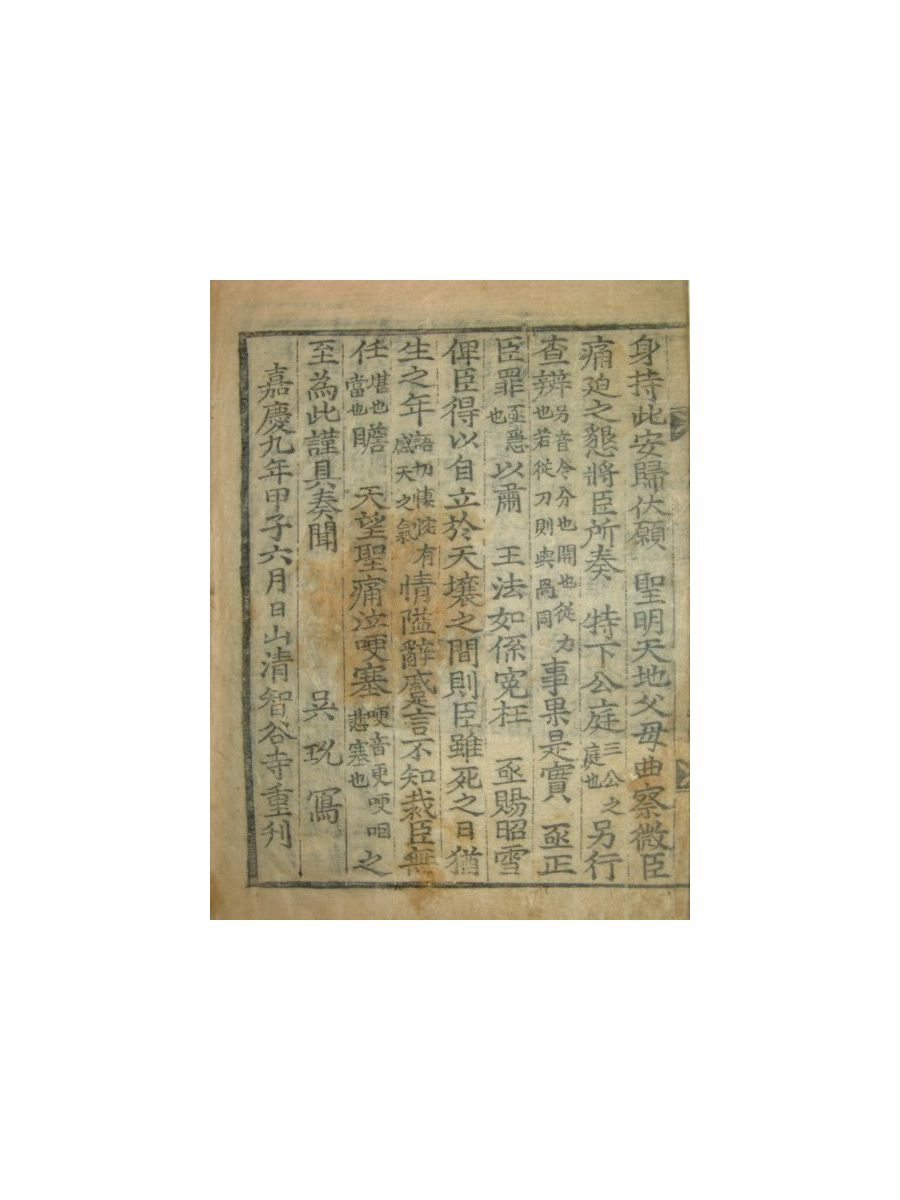 身持此安歸伏願　聖明天地父母曲察微臣
痛迫之懇將臣所奏　特下公庭三公之庭也另行
查辨另音令分也開也從力也若從刀則與咼同事果是實　亟正
臣罪亟急也以肅　王法如係寃枉　亟賜昭雪
俾臣得以自立於天壤之間則臣雖死之日猶
生之年語切悽惋有感天之氣情隘辭慼言不知裁臣無
任堪也當也瞻　天望聖痛泣哽塞哽音更哽咽悲塞也之
至為此謹具奏聞　吳　寫
嘉慶九年甲子六月日山清智谷寺重刊